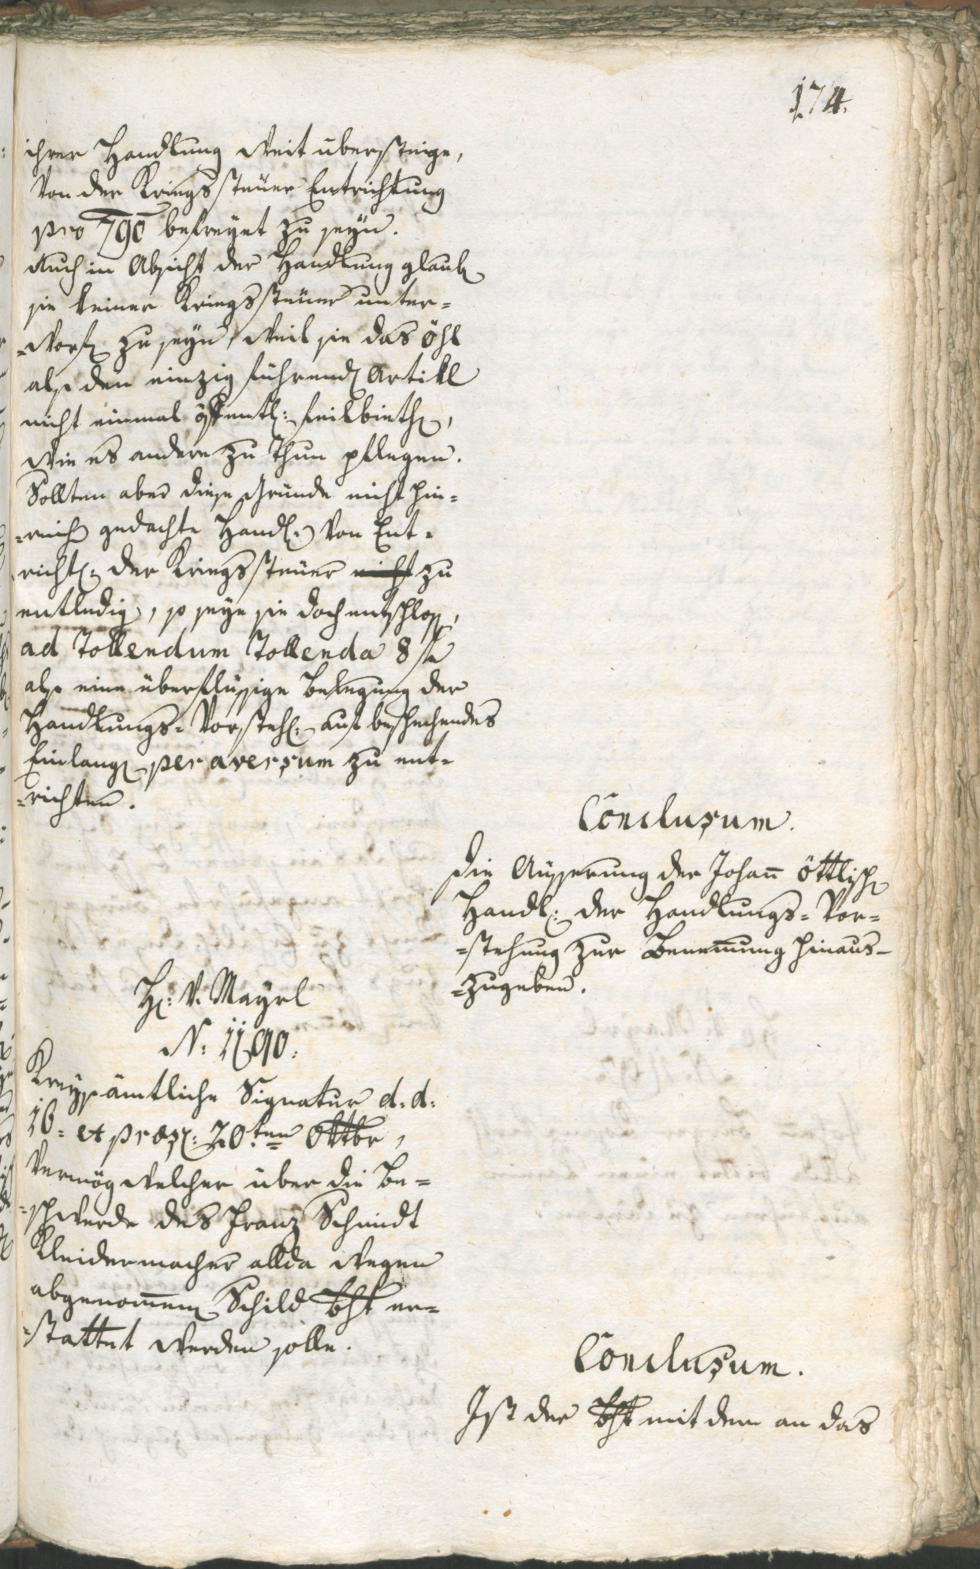 174.
ihrer Handlung weit übersteige,
von der Kriegssteüer Entrichtung
pro 790 befreyet zu seyn.
Auch in Absicht der Handlung glaub
sie keiner Kriegssteüer unter=
=worf zu seyn, weil sie das Öhl
als den einzig führend Artikl
nicht einmal öffentl: feilbieth,
wie es andere zu thun pflegen.
Sollten aber diese Gründe nicht hin=
=reich gedachte Handl: von Ent=
richt: der Kriegssteüer nicht zu
entledig, so seye sie doch entschloss,
ad Tollendum Tollenda 8 f
als eine überflüssige Belegung der
Handlungs=Vorsteh: auf beschehendes
Einlang per aversum zu ent=
=richten.
Conclusum.
Die Äusserung der Johañ Öttlisch
Handl: der Handlungs=Vor=
=stehung zur Benemung hinaus=
=zugeben.
H: v. Mayrl
N: 1190.
Kreysämtliche Signatur d: d:
16= et præs: 20ten 8ttbr,
vermög welcher über die Be=
=schwerde des Franz Schmidt
Kleidermacher allda wegen
abgenom̄en Schild Bht er=
=stattet werden solle.
Conclusum.
Ist der Bht mit dem an das